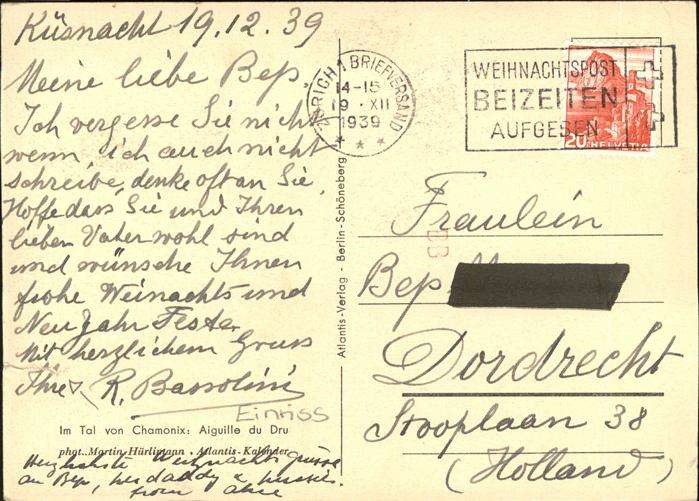 Küsnacht 19.12.39
Meine liebe Bep
Ich vergesse Sie nicht
wenn ich auch nicht
schreibe, denke oft an Sie,
Hoffe dass Sie und Ihren
lieben Vater wohl sind
und wünsche Ihnen
frohe Weinachts und
Neu Jahr Fester
Mit herzlichem Gruss
Ihre R. Bassolini
Einriss
Im Tal von Chamonix: Aiguille du Dru
phot. Martin Hürlimann . Atlantis-Kalender
Herzlichste Weihnachtsgrüsse
an Bep, her daddy &
from
Atlantis-Verlag - Berlin-Schöneberg
ZÜRICH 1 BRIEFVERSAND
14-15
19. XII
1939
WEIHNACHTSPOST
BEIZEITEN
AUFGEBEN
20 HELVETIA
Fräulein
Bep
Dordrecht
Stooplaan 38
(Holland)